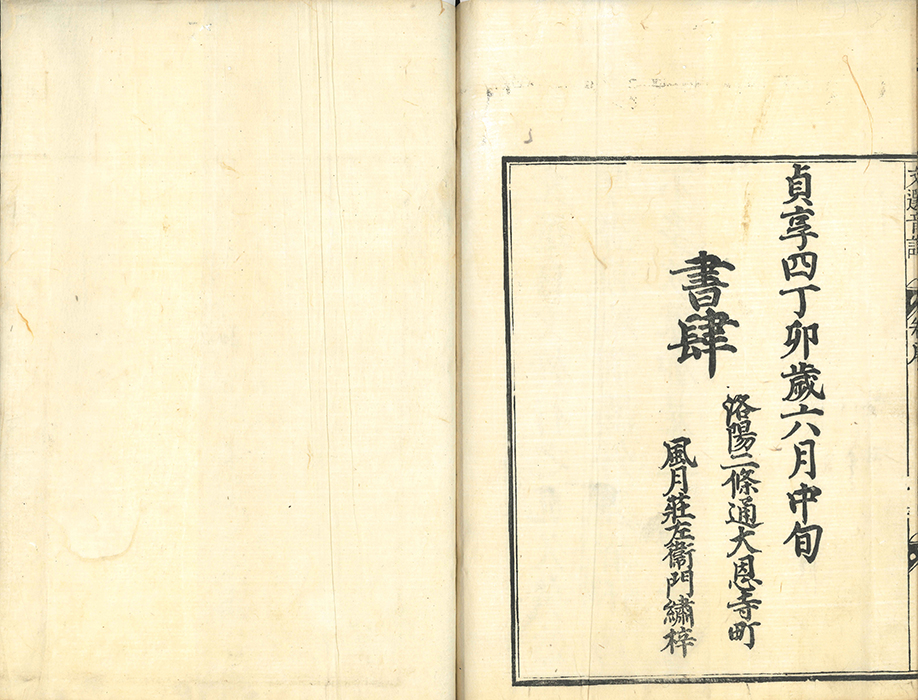 文選音註
貞享四丁卯歲六月中旬
書肆
洛陽二條通大恩寺町
風月莊左衞門繡梓